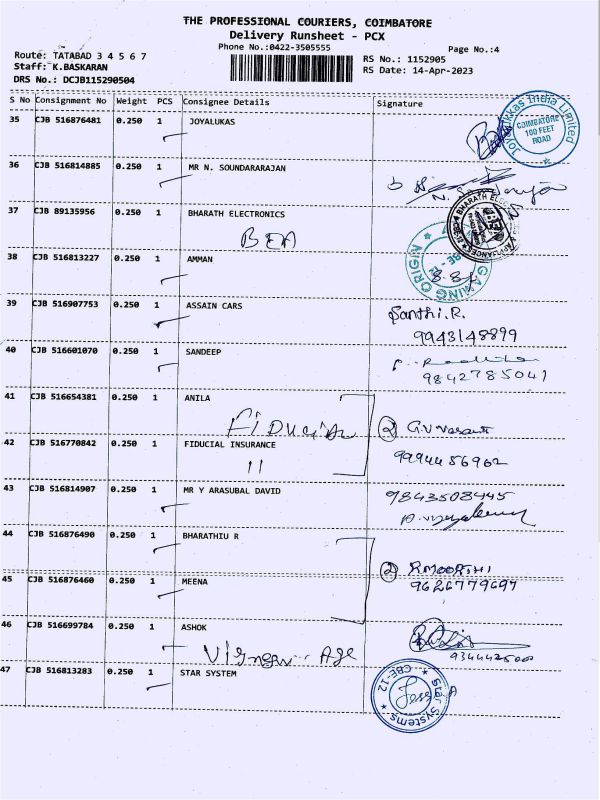 THE PROFESSIONAL COURIERS, COIMBATORE
Delivery Runsheet - PCX
Phone No.:0422-3505555
Page No.:4
Route: TATABAD 3 4 5 6 7
Staff: K.BASKARAN
DRS No.: DCJB115290504
RS No.: 1152905
RS Date: 14-Apr-2023
S No Consignment No Weight PCS Consignee Details Signature
35 CJB 516876481 0.250 1 JOYALUKAS
Joyalukkas India Limited
COIMBATORE
100 FEET
ROAD
36 CJB 516814885 0.250 1 MR N. SOUNDARARAJAN
37 CJB 89135956 0.250 1 BHARATH ELECTRONICS
BEA
38 CJB 516813227 0.250 1 AMMAN
GAMING ORIGIN
39 CJB 516907753 0.250 1 ASSAIN CARS
Santhi.R.
9943148899
40 CJB 516601070 0.250 1 SANDEEP
9842785041
41 CJB 516654381 0.250 1 ANILA
② G.V
42 CJB 516770842 0.250 1 FIDUCIAL INSURANCE
"
9994456962
43 CJB 516814907 0.250 1 MR Y ARASUBAL DAVID
9843508445
44 CJB 516876490 0.250 1 BHARATHIU R
② R MOORTHI
9626779697
45 CJB 516876460 0.250 1 MEENA
46 CJB 516699784 0.250 1 ASHOK
47 CJB 516813283 0.250 1 STAR SYSTEM
Star Systems
CBE-12